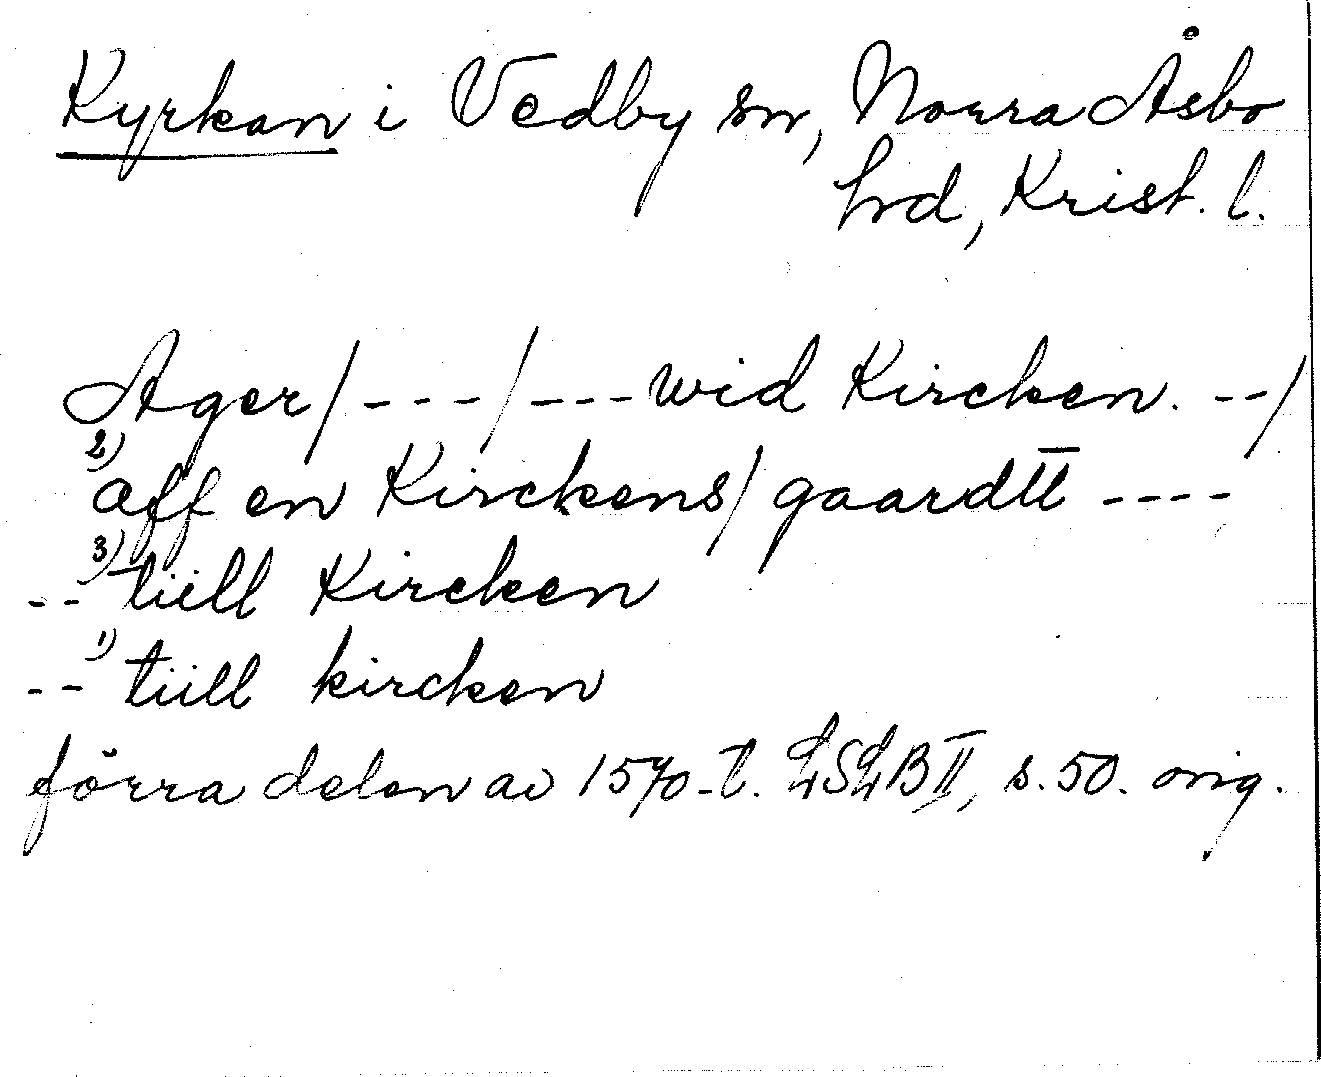 Kyrkan i Vedby sn, Norra Åsbo
hrd, Krist. l.
Ager/---/---wid Kircken. --/
2)
aff en Kirckens/gaardtt ----
3)
-- tiill Kircken
1)
-- tiill kircken
förra delen av 1570-t. LSLB II, s. 50. orig.